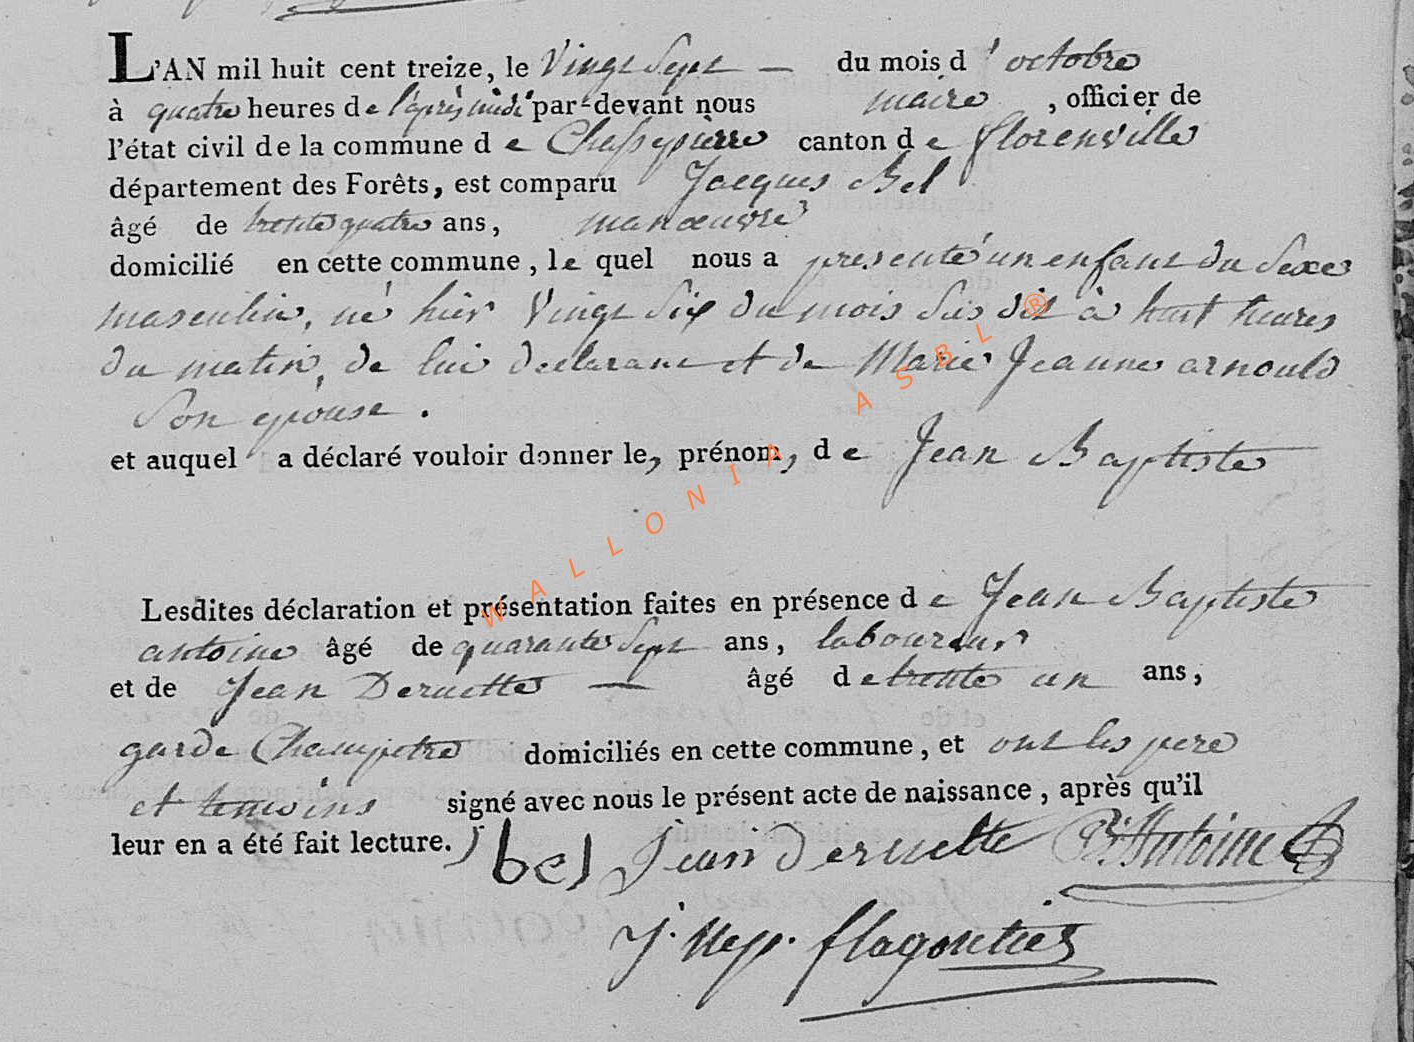 L'AN mil huit cent treize, le Vingt Sept — du mois d'octobre
à quatre heures de l'après midi par-devant nous maire, officier de
l'état civil de la commune de Chassepierre canton de florenville
département des Forêts, est comparu Jacques Bel
âgé de trente quatre ans, manœuvre
domicilié en cette commune, le quel nous a presenté un enfant du Sexe
masculin, né hier Vingt Six du mois Sus dit à huit heures
du matin, de lui declarant et de Marie Jeanne arnould
Son epouse.
et auquel a déclaré vouloir donner le, prénom, de Jean Baptiste
WALLONIA ASBL ®
Lesdites déclaration et présentation faites en présence de Jean Baptiste
antoine âgé de quarante Sept ans, laboureur
et de Jean Deruette — âgé de trente un ans,
garde Champetre domiciliés en cette commune, et ont les pere
et temoins signé avec nous le présent acte de naissance, après qu'il
leur en a été fait lecture. J bel Jean Deruette Bt Antoine
J. Nep. flagontier